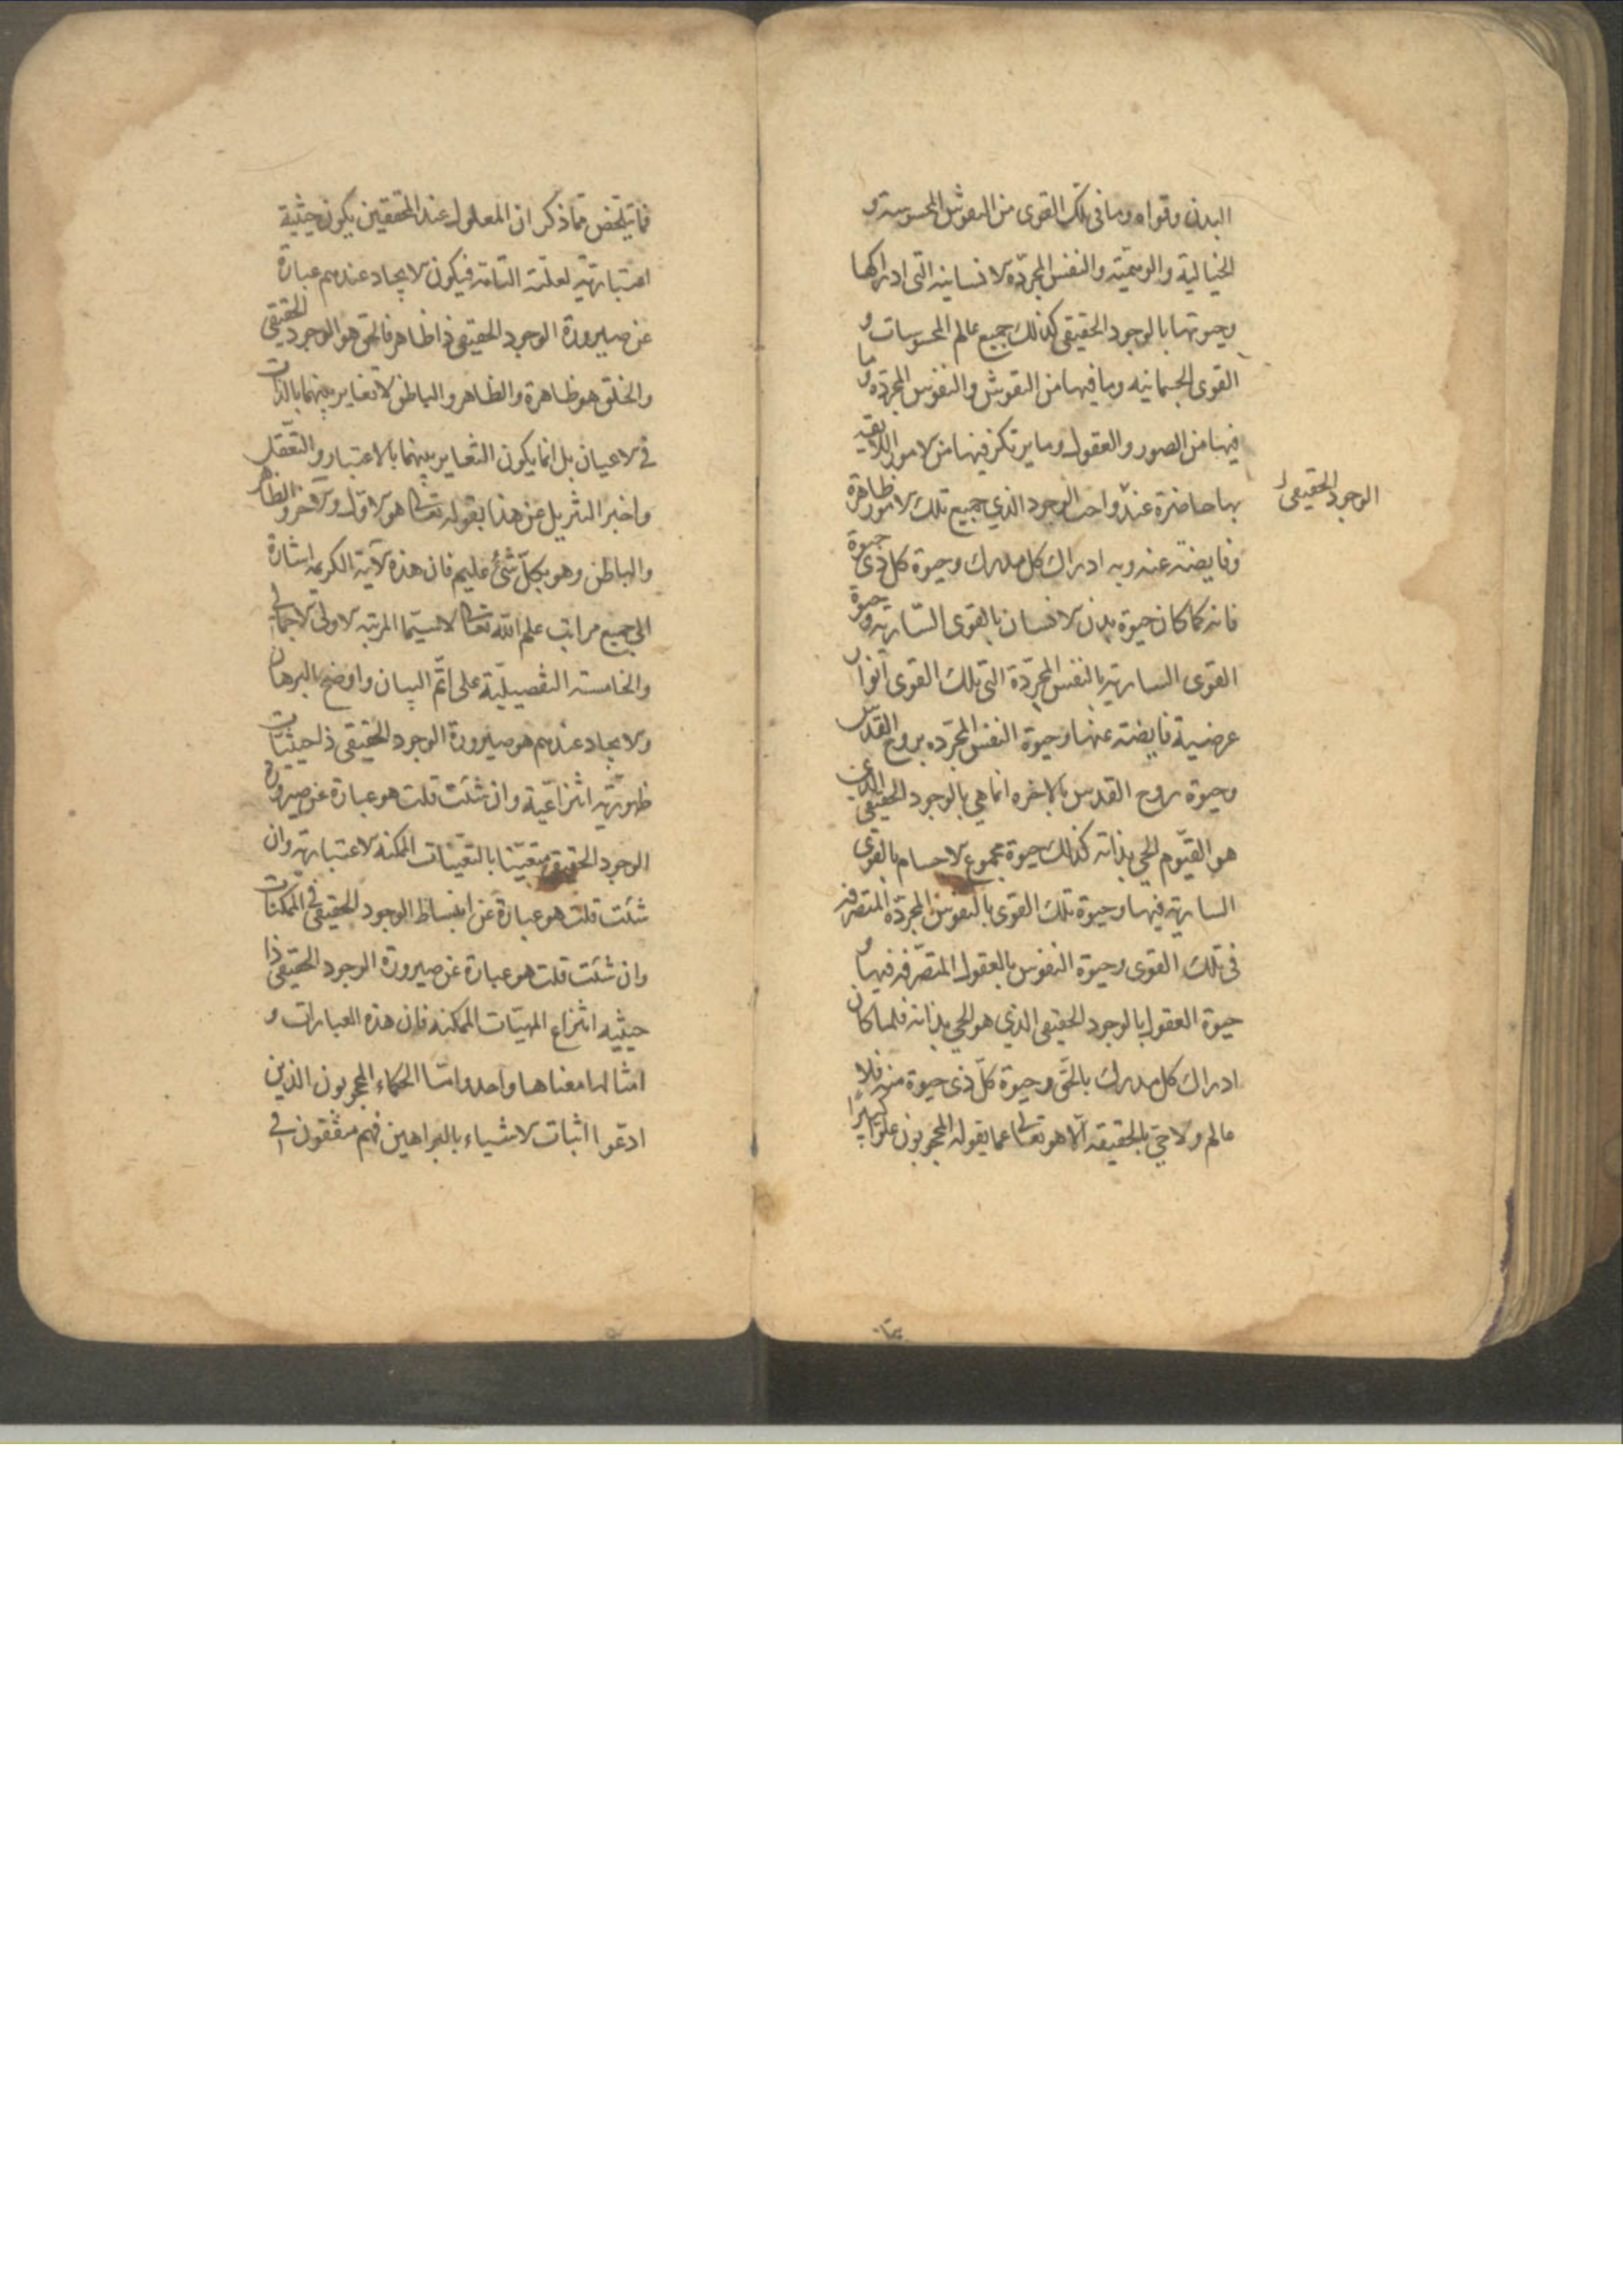 البدن وقواه وما فى تلك القوى من النقوش المحسوسة و
الخيالية والوهميّة والنفس المجرّدة الانسانية التى ادراكها
وحيوتها بالوجود الحقيقى كذلك جميع عالم المحسوسات و
القوى الجسمانيه وما فيها من النقوش والنفوس المجرّده وما
فيها من الصور والعقول وما يرتكز فيها من الامور اللايقه
بها حاضرة عند واجب الوجود الذي جميع تلك الامور ظاهرة
الوجود الحقيقى
وفايضة عنه وبه ادراك كل مدرك وحيوة كل ذى حيوة
فانه كما كان حيوة بدن الانسان بالقوى السّارية وحيوة
القوى السارية بالنفس المجرّدة التى تلك القوى انوار
عرضية فايضة عنها وحيوة النفس المجرّده بروح القدس
وحيوة روح القدس بالاخره انما هي بالوجود الحقيقى الذى
هو القيّوم الحي بذاته كذلك حيوة مجموع الاجسام بالقوى
السارية فيها وحيوة تلك القوى بالنفوس المجرّدة المتصرفه
فى تلك القوى وحيوة النفوس بالعقول المتصّرفه فيها و
حيوة العقول بالوجود الحقيقى الذي هو الحي بذاته فلما كان
ادراك كل مدرك بالحّى وحيوة كلّ ذى حيوة منه فلا
عالم ولا حيّ بالحقيقه الّا هو تعالى عما يقوله المحجوبون علوّا كبيرًا
فما يتلخص مّما ذكر ان المعلول عند المحققين يكون حيثية
اعتبارية لعلّته التامّة فيكون الايجاد عندهم عبارة
عن صيرورة الوجود الحقيقى ذا ظاهر فالحق هو الوجود الحقيقى
والخلق هو ظاهرة والظاهر والباطن لا تغاير بينهما بالذات
فى الاعيان بل انما يكون التغاير بينهما بالاعتبار والتّعقل
واخبر التنزيل عن هذا بقوله تعالى هو الاوّل والآخر والظاهر
والباطن وهو بكلّ شئ عليم فان هذه الآية الكريمة اشارة
الى جميع مراتب علم الله تعالى لاسيّما المرتبه الاولى الاجمالى
والخامسة التفصيليّة على اتّم البيان واوضح البرهان
والايجاد عندهم هو صيرورة الوجود الحقيقى ذا حيثيّات
ظهوريّة انتزاعيّة وان شئت قلت هو عبارة عن صيرورة
الوجود الحقيقى متعيّنا بالتعيّنات الممكنة الاعتبارية وان
شئت قلت هو عبارة عن انبساط الوجود الحقيقى فى الممكنات
وان شئت قلت هو عبارة عن صيرورة الوجود الحقيقى ذا
حيثيه انتزاع المهيّات الممكنه فان هذه العبارات و
امثالها معناها واحد وامّا الحكماء المحجوبون الذين
ادّعوا اثبات الاشياء بالبراهين فهم متّفقون فى